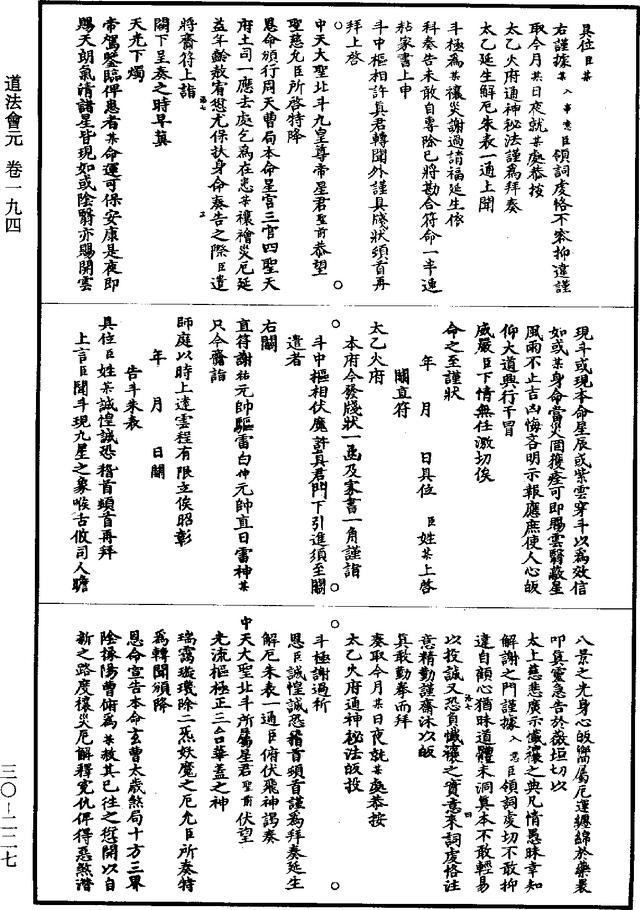 道法會元 卷一九四
具位臣某
右謹據某入事意臣領詞虔恪不容抑違謹
取今月某日夜就某處恭按
太乙火府通神秘法謹為拜奏
太乙延生解厄朱表一通上聞
斗極為某禳災謝過請福延生恪
科奏告未敢自專除已將勘合符命一半連
粘家書上申
斗中樞相許真君轉聞外謹具牋狀頓首再
拜上啓
中天大聖北斗九皇尊帝星君聖前恭望
聖慈允臣所啓特降
恩命頒行周天曹局本命星宮三官四聖天
府土司一應去處乞為在患某禳禬災厄延
益年齡赦宥愆尤保扶身命奏告之際臣遣
將齎符上詣
闕下呈奏之時早冀
天光下燭
帝駕鑒臨俾患者某命運可保安康是夜即
賜天朗氣清諸星皆現如或陰翳亦賜開雲
現斗或現本命星辰或紫雲穿斗以為效信
如或某身命當災固獲痊可即賜雲翳蔽星
風雨不止吉凶悔吝明示報應庶使人心皈
仰大道興行干冒
威嚴臣下情無任激切俟
命之至謹狀
年 月 日具位 臣姓某上啓
關直符
太乙火府
本府今發牋狀一函及家書一角謹詣
斗中樞相伏魔許真君門下引進須至關
遣者
右關
直符謝祐元帥驅雷白伸元帥直日雷神某
只今齎詣
師庭以時上達雲程有限立俟昭彰
年 月 日關
告斗朱表
具位臣姓某誠惶誠恐稽首頓首再拜
上言臣聞斗現九星之象喉舌攸司人瞻
八景之光身心皈嚮屬厄運纏綿於藥裹
叩真靈急告於薇垣切以
太上慈悲廣示懺禳之典凡情愚昧幸知
解謝之門謹據入意臣領詞虔切不敢抑
違自顧心猶昧道體未洞真本不敢輕易
以投誠又恐負懺禳之實意來詞虔恪注
意精勤謹齋沐以皈
真敢勤拳而拜
奏取今月某日夜就某處恭按
太乙火府通神秘法皈投
斗極謝過祈
恩臣誠惶誠恐稽首頓首謹為拜奏延生
解厄朱表一通臣俯伏飛神謁奏
中天大聖北斗所屬星君聖前伏望
光流樞極正三台華蓋之神
瑞靄璇璣除二炁妖魔之厄允臣所奏特
為轉聞頒降
恩命宣告本命玄曹太歲煞局十方三界
陰掾陽曹俯為某赦其已往之愆開以自
新之路度禳災厄解釋冤仇俾得惡煞潛
三〇—二二七